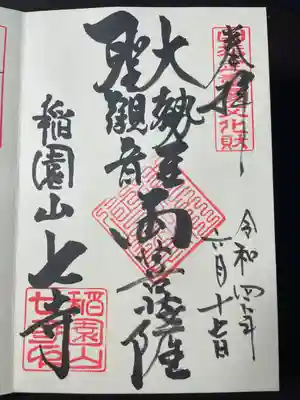 奉拝
令和四年
六月十七日
大勢至
聖觀音
両菩薩
稲園山七寺
文化財
稲園山